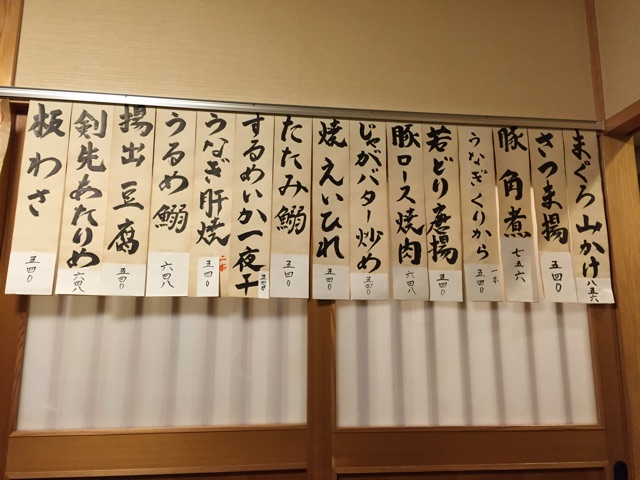 まぐろ山かけ
八五六
さつま揚
五四〇
豚角煮
七五六
うなぎくりから
一本
五四〇
若どり唐揚
五四〇
豚ロース焼肉
六四八
じゃがバター炒め
五四〇
焼えいひれ
五四〇
たたみ鰯
五四〇
するめいか一夜干
五四〇
うなぎ肝焼
二本
五四〇
うるめ鰯
六四八
揚出豆腐
五四〇
剣先あたりめ
六四八
板わさ
五四〇